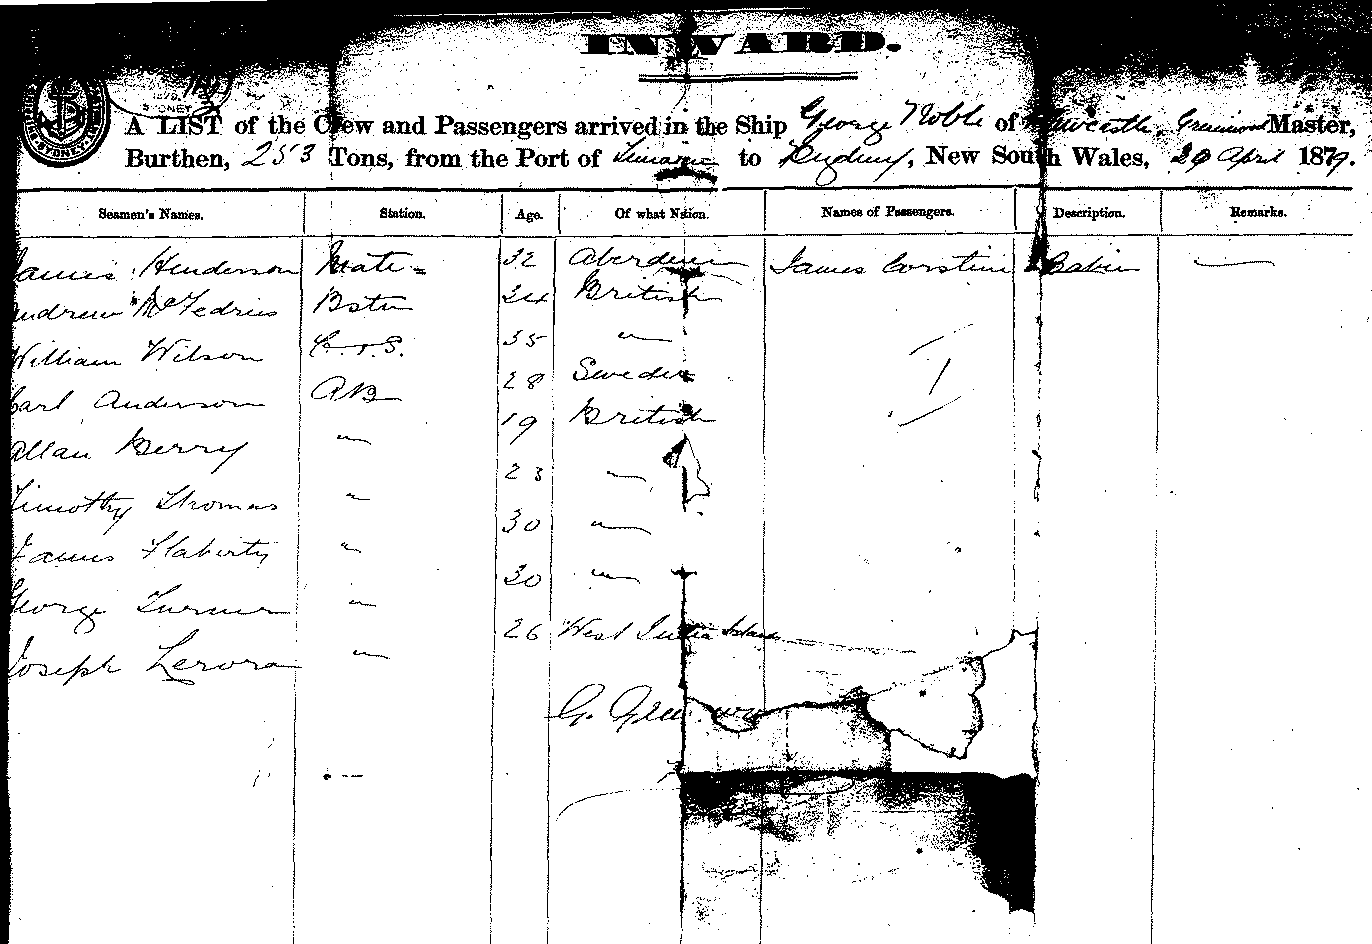 INWARD.
SYDNEY
A LIST of the Crew and Passengers arrived in the Ship George Noble of Newcastle, Master,
Burthen, 253 Tons, from the Port of to Sydney, New South Wales, 29 April 1879.
Seamen's Names. Station. Age. Of what Nation. Names of Passengers. Description. Remarks.
James Henderson Mate 32 Aberdeen James Cabin
Andrew McFedries Bstn 24 British
William Wilson C. & S. 35 "
Carl Anderson AB 28 Sweden
Allan Berry " 19 British
Timothy Thomas " 23 "
James Flaherty " 30 "
George Turner " 30 "
Joseph " 26 West India Island
G.